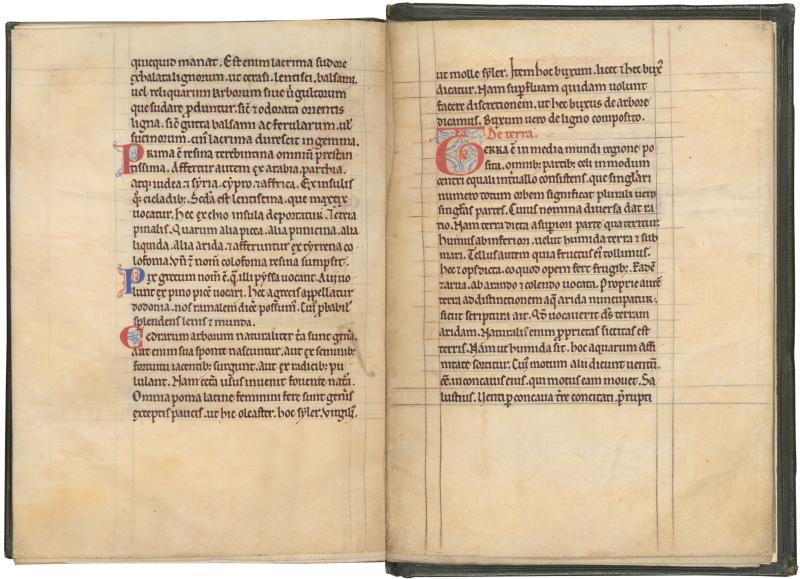 quicquid manat. Est enim lacrima sudore
exhalata lignorum. ut cerasi. lentisci. balsami.
uel reliquarum arborum siue uirgultorum
que sudare produntur. sic & odorata orientis
ligna. sic gutta balsami ac ferularum. uel
sucinorum. cuius lacrima durescit in gemma.
Prima ē resina terebintina omniū prestan
tissima. Affertur autem ex arabia. parchia.
atq; iudea & syria. cypro. & affrica. Ex insulis
q; cicladib; Scda ē lentiscina. que
uocatur. hec ex chio insula deportatur. Tercia
pinalis. Quarum alia picea. alia punicina. alia
liquida. alia arida. & afferuntur ex cyrena co
lofoma. Vn & nom̄ colofoma resina sumpsit.
Pix grecum nom̄ ē. q̄ illi pyssa uocant. Alii uo
lunt ex pino picē uocari. hec a grecis appellatur
dodonia. nos ramalem dice possum;.
splendens lenis & munda.
Cedrarum arborum naturaliter
aut enim sua sponte nascuntur. aut ex seminib;
fortuitu iacentib; surgunt. aut ex radicib; pu
lulant. Nam cetā usus inuenit fouente natā.
Omnia poma latine feminini fere sunt genis
exceptis paucis. ut hic oleaster. hoc syler. uirgili;.
ut molle syler. Item hoc buxum. licet & hec bux;
dicatur. Nam superfluam quidam uolunt
facere discretionem. ut hec buxus de arbore
dicamus. Buxum uero de ligno composito.
De terra.
Terra ē in media mundi regione po
sita. omnib; partib; celi in modum
centri equali interuallo consistens. que singlāri
numero totum orbem significat plurali uero
singlas partes. Cuius nomina diuersa dat ra
tio. Nam terra dicta a superiori parte qua teritur
humus ab inferiori. uelut humida terra & sub
mari. Tellus autem quia fructus ei; tollimus.
hec & ops dicta. eo quod opem fert frugib;. Eadē
& arua. ab arando & colendo uocata. Proprie autē
terra ad distinctionem aq̄ arida nuncupatur.
sicut scriptura ait. Qd uocauerit d̄s terram
aridam. Naturalis enim proprietas siccitas est
terris. Nam ut humida sit. hoc aquarum affi
nitate sortitur. Cui; motum alii dicunt uentū.
eē. in concauis eius. qui motus eam mouet. Sa
lustius. Uenti per concaua tre concitati. prrupti